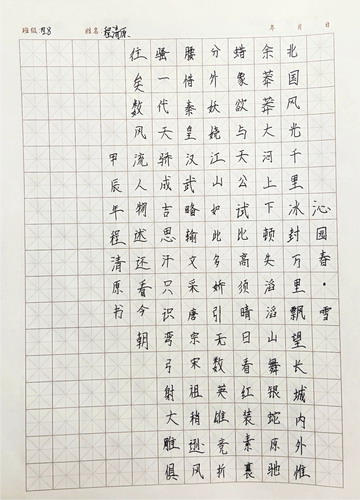 班级: 姓名: 程清原 年 月 日
沁园春·雪
北国风光千里冰封万里飘望长城内外惟
余莽莽大河上下顿失滔滔山舞银蛇原驰
蜡象欲与天公试比高须晴日看红装素裹
分外妖娆江山如此多娇引无数英雄竞折
腰惜秦皇汉武略输文采唐宗宋祖稍逊风
骚一代天骄成吉思汗只识弯弓射大雕俱
往矣数风流人物述还看今朝
甲辰年程清原书